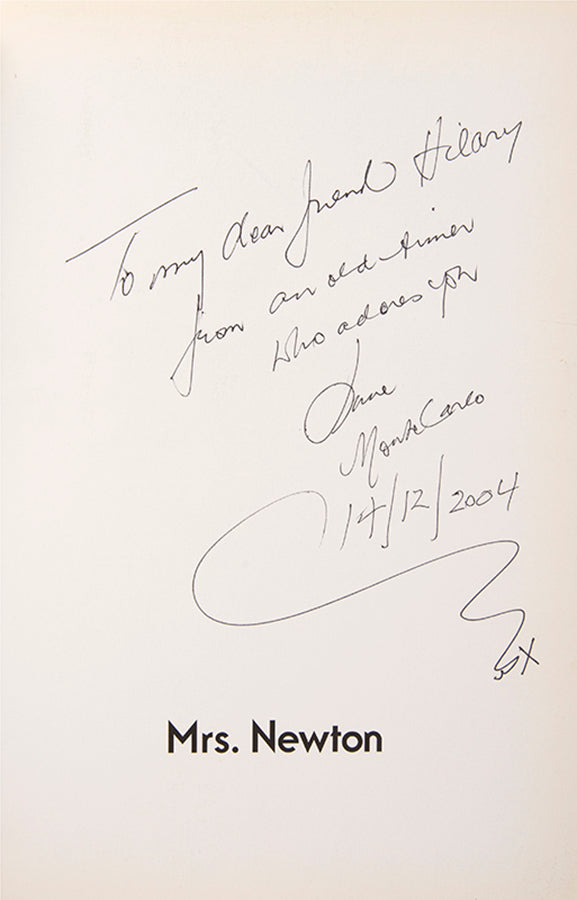 To my dear friend Hilary
from an old-timer
who adores you
June
Monte Carlo
14/12/2004
X
Mrs. Newton